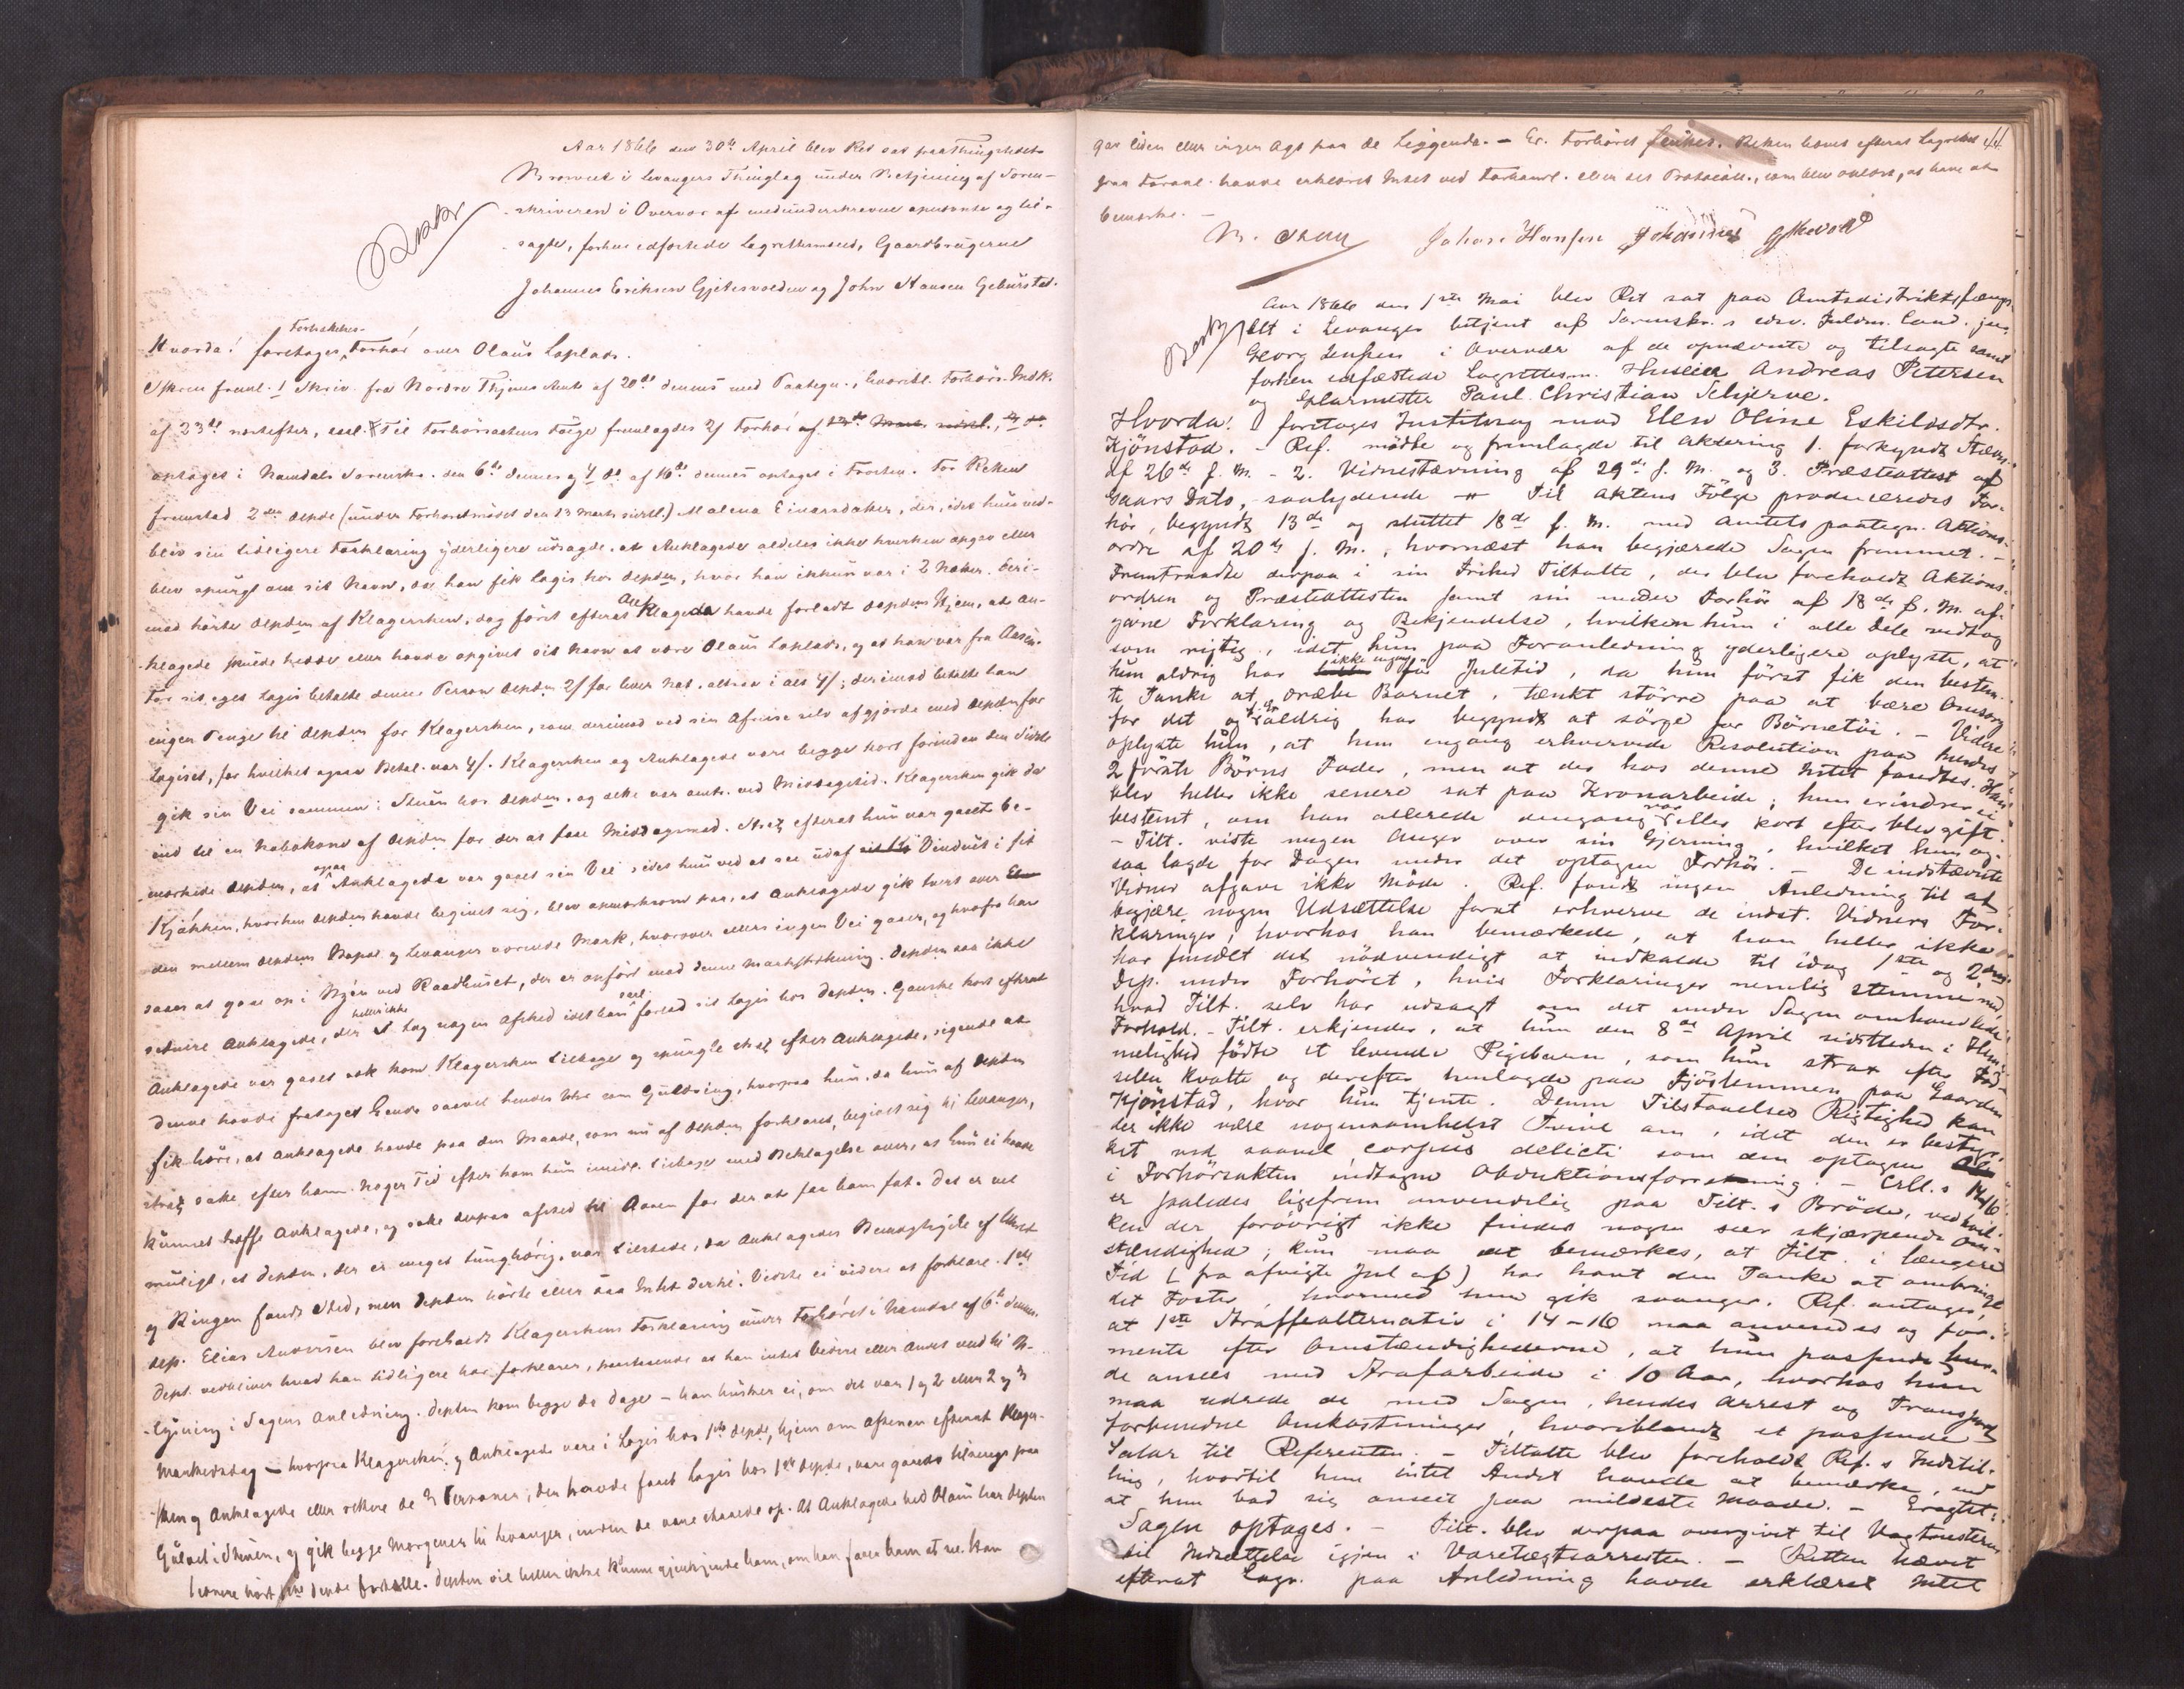 Aar 1866 den 30te April blev Ret sat paa Thingstedet
Brusved i Levangers Thinglag under Betjening af Soren-
skriveren i Overvær af medunderskrevne opnævnte og til-
sagte, forhen edfæstede Lagrettesmænd, Gaardbrugerne
Johannes Eriksen Gjetesvolden og John Hansen Geburstad.
Hvorda! foretages Fortsættelses- Forhør over Olaus Loplads.
af 23de næstefter, saal. Til Forhørsactens Følge fremlagdes 2/ Forhør af
optaget i Namdals Sorenskr. den 6te dennes og 4 do af 16de dennes optaget i Frosten. For Retten
fremstod 2den Depde (under Forhørsmødet den 13 Marts sidstl.) Malena Einarsdatter, der, idet hun ved-
blev sin tidligere Forklaring yderligere udsagde, at Anklagede aldeles ikke hverken opgav eller
blev spurgt om sit Navn, da han fik Logis hos Depden, hvor han ikkun var i 2 Nætter. Deri-
mod hørte Depden af Klagersken, dog først efterat Anklagede havde forladt Depdens Hjem, at An-
klagede skulde hedde eller havde opgivet sit Navn at være Olaus Loplads, og at han var fra Aasen.
For sit eget Logis betalte denne Person Depden 2/ for hver Nat, altsaa i alt 4/; derimod betalte han
ingen Penge til Depden for Klagersken, som derimod ved sin Afreise selv afgjorde med Depden for
Logiset, for hvilket ogsaa Betal. var 4/. Klagersken og Anklagede vare begge kort forinden den Sidste
gik sin Vei sammen i Stuen hos Depden, og dette var omtr. ved Middagstid. Klagersken gik da
ind til en Nabokone af Depden for der at faae Middagsmad. Strax efterat hun var gaaet be-
mærkede Depden, at ogsaa Anklagede var gaaet sin Vei idet hun ved at see ud af Vinduet i sit
Kjøkken, hvorhen Depden havde begivet sig, blev opmærksom paa, at Anklagede gik tvert over
den mellem Depdens Bopæl og Levanger værende Mark, hvorover ellers ingen Vei gaaer, og hvorfra han
saaes at gaae op i Byen ved Raadhuset, der er opført mod denne Markstrækning. Depden saa ikke
senere Anklagede, der heller ikke tog nogen Afsked idet han saal. forlod sit Logis hos Depden. Ganske kort efterat
Anklagede var gaaet ud kom Klagersken tilbage og spurgte strax efter Anklagede, sigende at
denne havde fratagen hende saavel hendes Uhr som Guldring, hvorpaa hun, da hun af Depden
fik høre, at Anklagede havde paa den Maade, som nu af Depden forklaret, begivet sig til Levanger,
strax satte efter ham. Nogen Tid efter kom hun imidl. tilbage med Beklagelse over, at hun ei havde
kunnet træffe Anklagede, og satte derpaa afsted til Aasen for der at faa ham fat. Det er vel
muligt, at Depden, der er meget tunghørig, var tilstede, da Anklagedes Bemægtigelse af Uhret
og Ringen fandt Sted, men Depden hørte eller saa Intet dertil. Vidste ei videre at forklare. 1ste
Dep. Elias Andersen blev foreholdt Klagerskens Forklaring under Forhøret i Namdal af 6te dennes.
Dept. vedbliver hvad han tidligere har forklaret, paastaaende at han intet videre eller andet ved til Op-
lysning i Sagens Anledning. Depden kom begge de Dage – han husker ei, om det var 1 og 2 eller 2 og 3
Markedsdag – hvorpaa Klagersken og Anklagede vare i Logis hos 1ste Depde, hjem om Aftenen efterat Klager-
sken og Anklagede eller rettere de 2 Personer, der havde faaet Logis hos 1ste Depde, vare gaaede tilsengs paa
Gulvet i Stuen, og gik begge Morgener til Levanger, inden de vare staaede op. At Anklagede hed Olaus har Depden
senere hørt 1ste Depde fortælle. Depden vil heller ikke kunne gjenkjende ham, om han faaer ham at see. Han
gav liden eller ingen Agt paa de Liggende. – Er. Forhøret sluttet. Retten hævet efterat Lagrettet
paa Foranl. havde erklæret Intet ved Forhandl. eller dets Protocoll., som blev oplæst, at have at
bemærke. –
Johan Hansen Johannes Gjetesvold
44
Aar 1866 den 1ste Mai blev Ret sat paa Amtsdistriktsfængs-
let i Levanger betjent af Sorenskr.s edsv. Fuldm. Cand. jur.
Georg Jensen i Overvær af de opnævnte og tilsagte samt
forhen edfæstede Lagrettesm. Huseier Andreas Petersen
og Glarmester Paul Christian Schjerve.
Hvorda! foretages Justitssag mod Elen Oline Eskildsdtr.
Kjønstad. – Ref. mødte og fremlagde til Aktering 1. forkyndt Stævn.
af 26de f. M. – 2. Vidnestævning af 29de f. M. og 3. Præsteattest af
Gaars Dato, saalydende – Til Aktens Følge produceredes For-
hør, begyndt 13de og sluttet 18de f. M. med Amtets paategn. Aktions-
ordre af 20de f. M., hvornæst han begjærede Sagen fremmet. –
Fremtraadte derpaa i sin Frihed Tiltalte, der blev foreholdt Aktions-
ordren og Præsteattesten samt sin under Forhør af 18de f. M. af-
givne Forklaring og Bekjendelse, hvilken hun i alle Dele vedtog
som rigtig, idet hun paa Foranledning yderligere oplyste, at
hun aldrig har ikke engang før Juletid, da hun først fik den bestem-
te Tanke at dræbe Barnet, tænkt større paa at bære Omsorg
for det og aldrig har begyndt at sørge for Børnetøi. – Videre
oplyste hun, at hun engang erhvervede Resolution paa hendes
2 første Børns Fader, men at der hos denne Intet fandtes. Han
blev heller ikke senere sat paa Tvangsarbeide; hun erindrer ei
bestemt, om han allerede dengang var eller kort efter blev gift.
– Tilt. viste nogen Anger over sin Gjerning, hvilket hun og-
saa lagde for Dagen under det optagne Forhør. – De indstævnte
Vidner afgave ikke Møde. Ref. fandt ingen Anledning til at
begjære nogen Udsættelse forat erhverve de indst. Vidners For-
klaringer, hvorhos han bemærkede, at han heller ikke
har fundet det nødvendigt at indkalde til idag 1ste og 2den
Dep. under Forhøret, hvis Forklaringer nemlig stemme med
hvad Tilt. selv har udsagt om det under Sagen omhandlede
Forhold. – Tilt. erkjender, at hun den 8de April sidstleden i Hem-
melighed fødte et levende Pigebarn, som hun strax efter Fød-
selen kvalte og derefter henlagde paa Fjøslemmen paa Gaarden
Kjønstad, hvor hun tjente. Denne Tilstaaelses Rigtighed kan
der ikke være nogensomhelst Tvivl om, idet den er bestyr-
ket ved saavel corpus delicti som den optagne
i Forhørsakten indtagne Obduktionsforretning. – Crll.s 14/16
er saaledes ligefrem anvendelig paa Tilt.s Brøde, ved hvil-
ken der forøvrigt ikke findes nogen især skjærpende Om-
stændighed; kun maa det bemærkes, at Tilt. i længere
Tid (fra afvigte Jul af) har havt den Tanke at ombringe
det Foster, hvormed hun gik svanger. Ref. antager,
at 1ste Straffealternativ i 14–16 maa anvendes og for-
mente efter Omstændighederne, at hun passende bur-
de ansees med Strafarbeide i 10 Aar, hvorhos hun
maa udrede de med Sagen, hendes Arrest og Transport
forbundne Omkostninger, hvoriblandt et passende
Salær til Referenten. – Tiltalte blev foreholdt Ref.s Indstil-
ling, hvortil hun intet Andet havde at bemærke, end
at hun bad sig anseet paa mildeste Maade. – Eragtet:
Sagen optages. – Tilt. blev derpaa overgivet til Vagtmesteren
til Indsættelse igjen i Varetægtsarresten. – Retten hævet
efterat Lagr. paa Anledning havde erklæret Intet